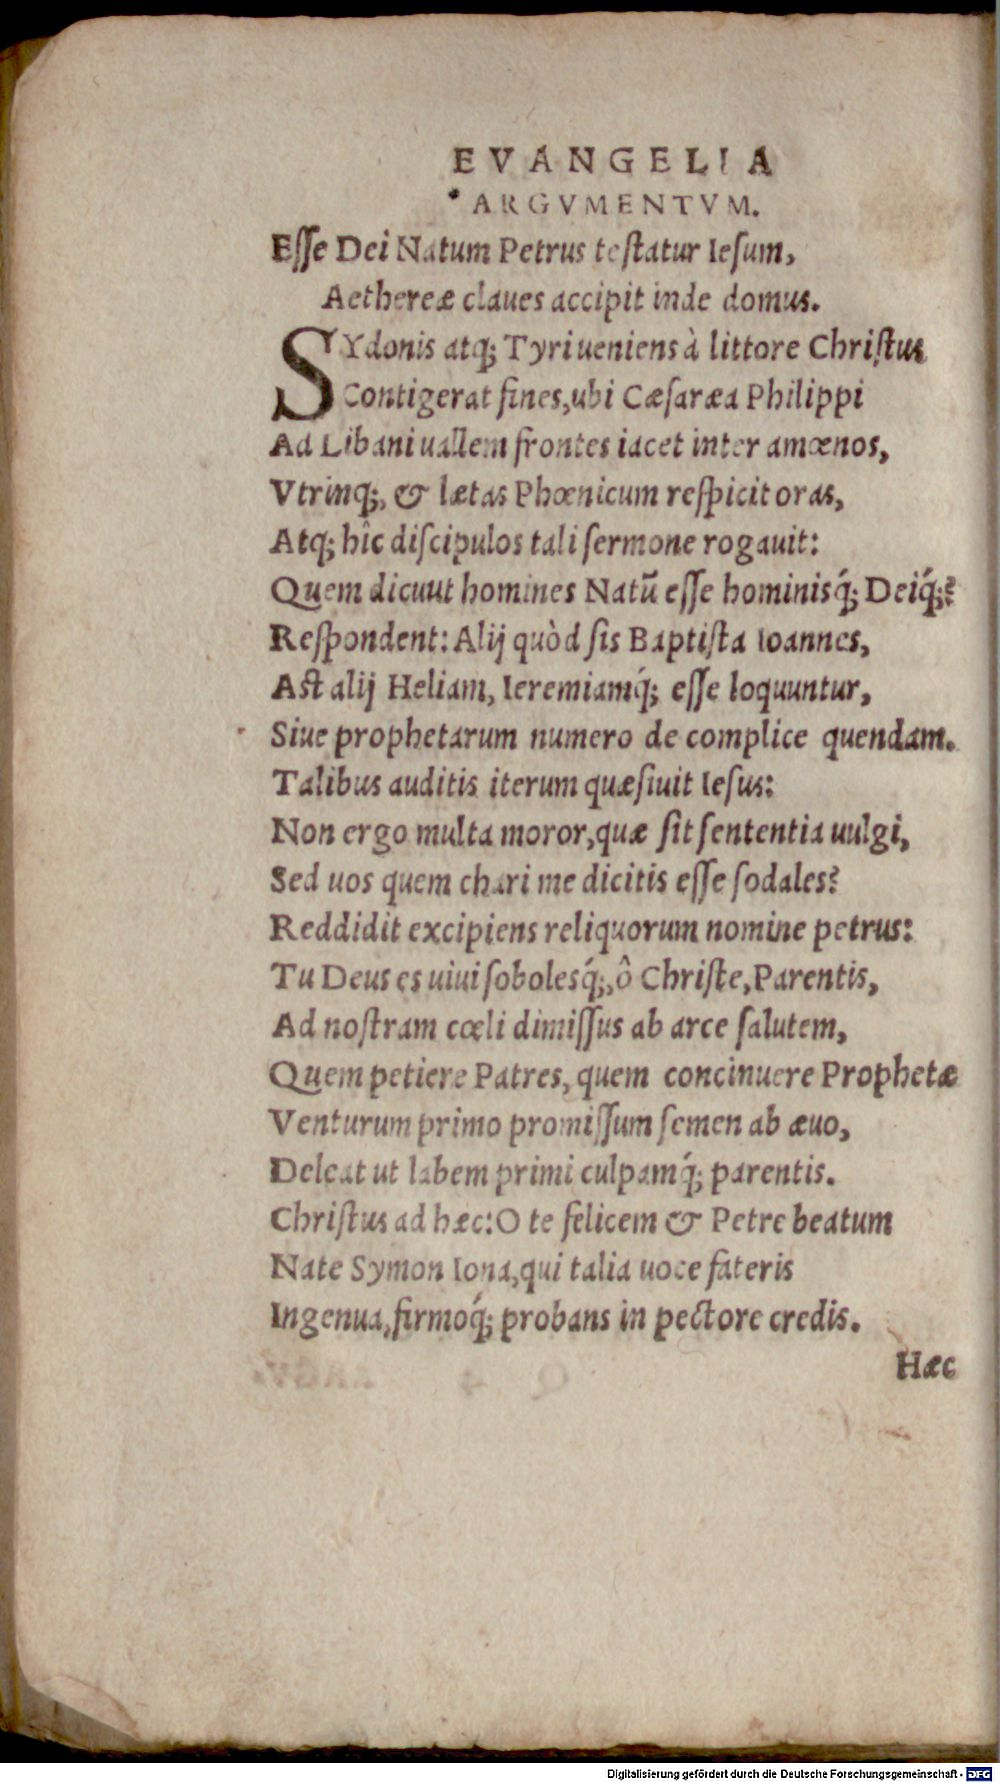 EVANGELIA
ARGVMENTVM.
Esse Dei Natum Petrus testatur Iesum,
Aethereæ claues accipit inde domus.
SYdonis atq; Tyri ueniens à littore Christus
Contigerat fines, ubi Cæsaræa Philippi
Ad Libani uallem frontes iacet inter amœnos,
Vtrinq;, & lætas Phœnicum respicit oras,
Atq; hîc discipulos tali sermone rogauit:
Quem dicuut homines Natũ esse hominisq́; Deiq́;?
Respondent: Alij quòd sis Baptista Ioannes,
Ast alij Heliam, Ieremiamq́; esse loquuntur,
Siue prophetarum numero de complice quendam.
Talibus auditis iterum quæsiuit Iesus:
Non ergo multa moror, quæ sit sententia uulgi,
Sed uos quem chari me dicitis esse sodales?
Reddidit excipiens reliquorum nomine petrus:
Tu Deus es uiui sobolesq́;, ô Christe, Parentis,
Ad nostram cœli dimissus ab arce salutem,
Quem petiere Patres, quem concinuere Prophetæ
Venturum primo promissum semen ab æuo,
Deleat ut labem primi culpamq́; parentis.
Christus ad hæc: O te felicem & Petre beatum
Nate Symon Iona, qui talia uoce fateris
Ingenua, firmoq́; probans in pectore credis.
Hæc
Digitalisierung gefördert durch die Deutsche Forschungsgemeinschaft - DFG